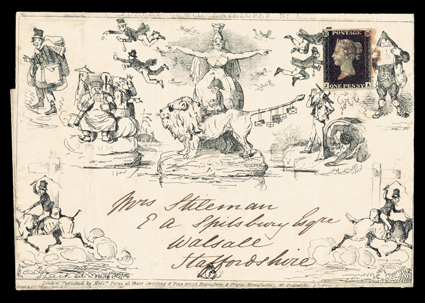 POSTAGE
ONE PENNY
Mrs Stileman
E A Spilsbury Esqre
Walsall
Staffordshire
London, Published by Messrs Fores at their Sporting & Fine Print Repository & Frame Manufactory, 41 Piccadilly